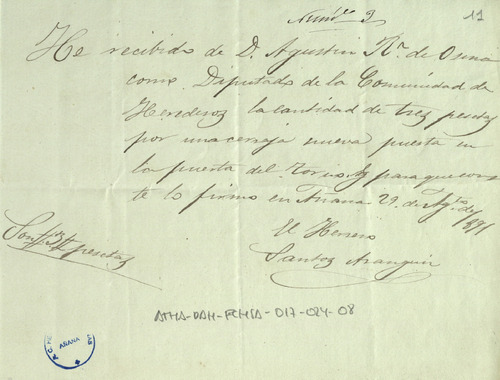 Núm.º 3
11
He recibido de D. Agustin Rz. de Osma
como Diputado de la Comunidad de
Herederos la cantidad de tres pesetas
por una cerraja nueva puesta en
la puerta del Torio. Y para que cons-
te lo firmo en Añana 29 de Agto. de 1891
El Herrero
Santos Aranguiz
Son pesetas
ATHA-DAH-FCHSA-017-024-08
AÑANA